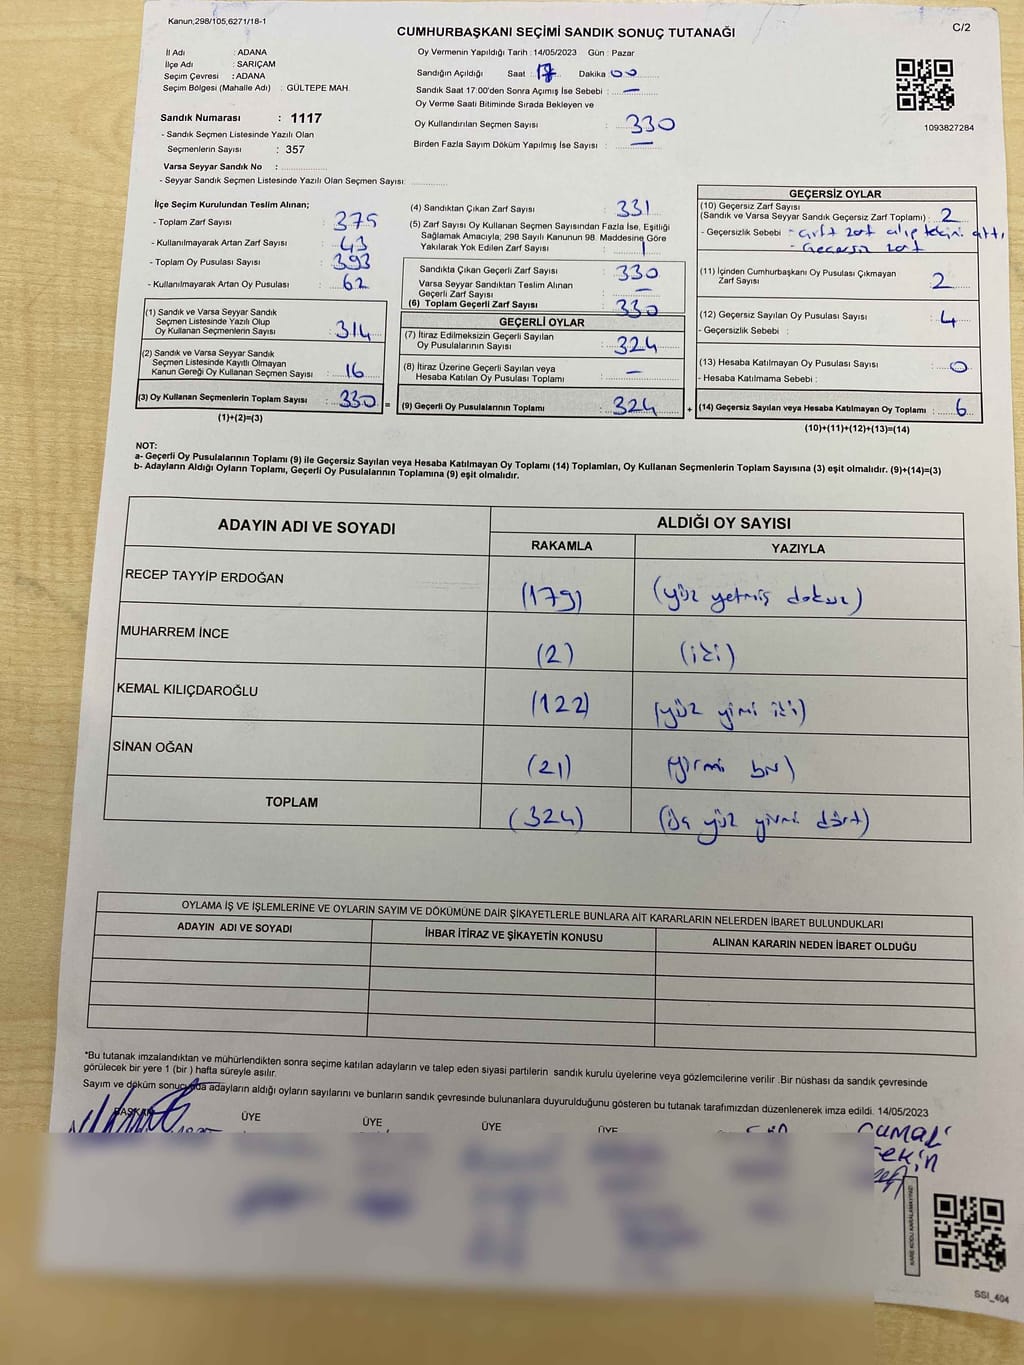 Kanun;298/105,6271/18-1
C/2
CUMHURBAŞKANI SEÇİMİ SANDIK SONUÇ TUTANAĞI
İl Adı : ADANA
İlçe Adı : SARIÇAM
Seçim Çevresi : ADANA
Seçim Bölgesi (Mahalle Adı) : GÜLTEPE MAH.
Sandık Numarası : 1117
- Sandık Seçmen Listesinde Yazılı Olan
Seçmenlerin Sayısı : 357
Varsa Seyyar Sandık No :
- Seyyar Sandık Seçmen Listesinde Yazılı Olan Seçmen Sayısı:
Oy Vermenin Yapıldığı Tarih : 14/05/2023 Gün : Pazar
Sandığın Açıldığı Saat : 17 Dakika 00
Sandık Saat 17:00'den Sonra Açımış İse Sebebi : —
Oy Verme Saati Bitiminde Sırada Bekleyen ve
Oy Kullandırılan Seçmen Sayısı : 330
Birden Fazla Sayım Döküm Yapılmış İse Sayısı : —
1093827284
İlçe Seçim Kurulundan Teslim Alınan;
- Toplam Zarf Sayısı : 375
- Kullanılmayarak Artan Zarf Sayısı : 43
- Toplam Oy Pusulası Sayısı : 393
- Kullanılmayarak Artan Oy Pusulası : 62
(1) Sandık ve Varsa Seyyar Sandık
Seçmen Listesinde Yazılı Olup
Oy Kullanan Seçmenlerin Sayısı : 314
(2) Sandık ve Varsa Seyyar Sandık
Seçmen Listesinde Kayıtlı Olmayan
Kanun Gereği Oy Kullanan Seçmen Sayısı : 16
(3) Oy Kullanan Seçmenlerin Toplam Sayısı : 330 =
(1)+(2)=(3)
(4) Sandıktan Çıkan Zarf Sayısı : 331
(5) Zarf Sayısı Oy Kullanan Seçmen Sayısından Fazla İse, Eşitliği
Sağlamak Amacıyla; 298 Sayılı Kanunun 98. Maddesine Göre
Yakılarak Yok Edilen Zarf Sayısı : 1
Sandıkta Çıkan Geçerli Zarf Sayısı : 330
Varsa Seyyar Sandıktan Teslim Alınan
Geçerli Zarf Sayısı : —
(6) Toplam Geçerli Zarf Sayısı : 330
GEÇERLİ OYLAR
(7) İtiraz Edilmeksizin Geçerli Sayılan
Oy Pusulalarının Sayısı : 324
(8) İtiraz Üzerine Geçerli Sayılan veya
Hesaba Katılan Oy Pusulası Toplamı : —
(9) Geçerli Oy Pusulalarının Toplamı : 324 +
GEÇERSİZ OYLAR
(10) Geçersiz Zarf Sayısı
(Sandık ve Varsa Seyyar Sandık Geçersiz Zarf Toplamı) : 2
- Geçersizlik Sebebi : - çift zarf alıp tekini attı,
- Geçersiz zarf
(11) İçinden Cumhurbaşkanı Oy Pusulası Çıkmayan
Zarf Sayısı : 2
(12) Geçersiz Sayılan Oy Pusulası Sayısı : 4
- Geçersizlik Sebebi :
(13) Hesaba Katılmayan Oy Pusulası Sayısı : 0
- Hesaba Katılmama Sebebi :
(14) Geçersiz Sayılan veya Hesaba Katılmayan Oy Toplamı : 6
(10)+(11)+(12)+(13)=(14)
NOT:
a- Geçerli Oy Pusulalarının Toplamı (9) ile Geçersiz Sayılan veya Hesaba Katılmayan Oy Toplamı (14) Toplamları, Oy Kullanan Seçmenlerin Toplam Sayısına (3) eşit olmalıdır. (9)+(14)=(3)
b- Adayların Aldığı Oyların Toplamı, Geçerli Oy Pusulalarının Toplamına (9) eşit olmalıdır.
ADAYIN ADI VE SOYADI
ALDIĞI OY SAYISI
RAKAMLA YAZIYLA
RECEP TAYYİP ERDOĞAN (179) (yüz yetmiş dokuz)
MUHARREM İNCE (2) (iki)
KEMAL KILIÇDAROĞLU (122) (yüz yirmi iki)
SİNAN OĞAN (21) (yirmi bir)
TOPLAM (324) (üç yüz yirmi dört)
OYLAMA İŞ VE İŞLEMLERİNE VE OYLARIN SAYIM VE DÖKÜMÜNE DAİR ŞİKAYETLERLE BUNLARA AİT KARARLARIN NELERDEN İBARET BULUNDUKLARI
ADAYIN ADI VE SOYADI İHBAR İTİRAZ VE ŞİKAYETİN KONUSU ALINAN KARARIN NEDEN İBARET OLDUĞU
*Bu tutanak imzalandıktan ve mühürlendikten sonra seçime katılan adayların ve talep eden siyasi partilerin sandık kurulu üyelerine veya gözlemcilerine verilir .Bir nüshası da sandık çevresinde
görülecek bir yere 1 (bir ) hafta süreyle asılır.
Sayım ve döküm sonucunda adayların aldığı oyların sayılarını ve bunların sandık çevresinde bulunanlara duyurulduğunu gösteren bu tutanak tarafımızdan düzenlenerek imza edildi. 14/05/2023
BAŞKAN ÜYE ÜYE ÜYE ÜYE
CUMALİ
TEKİN
KARE KODU KARALAMAYINIZ!
SSİ_404